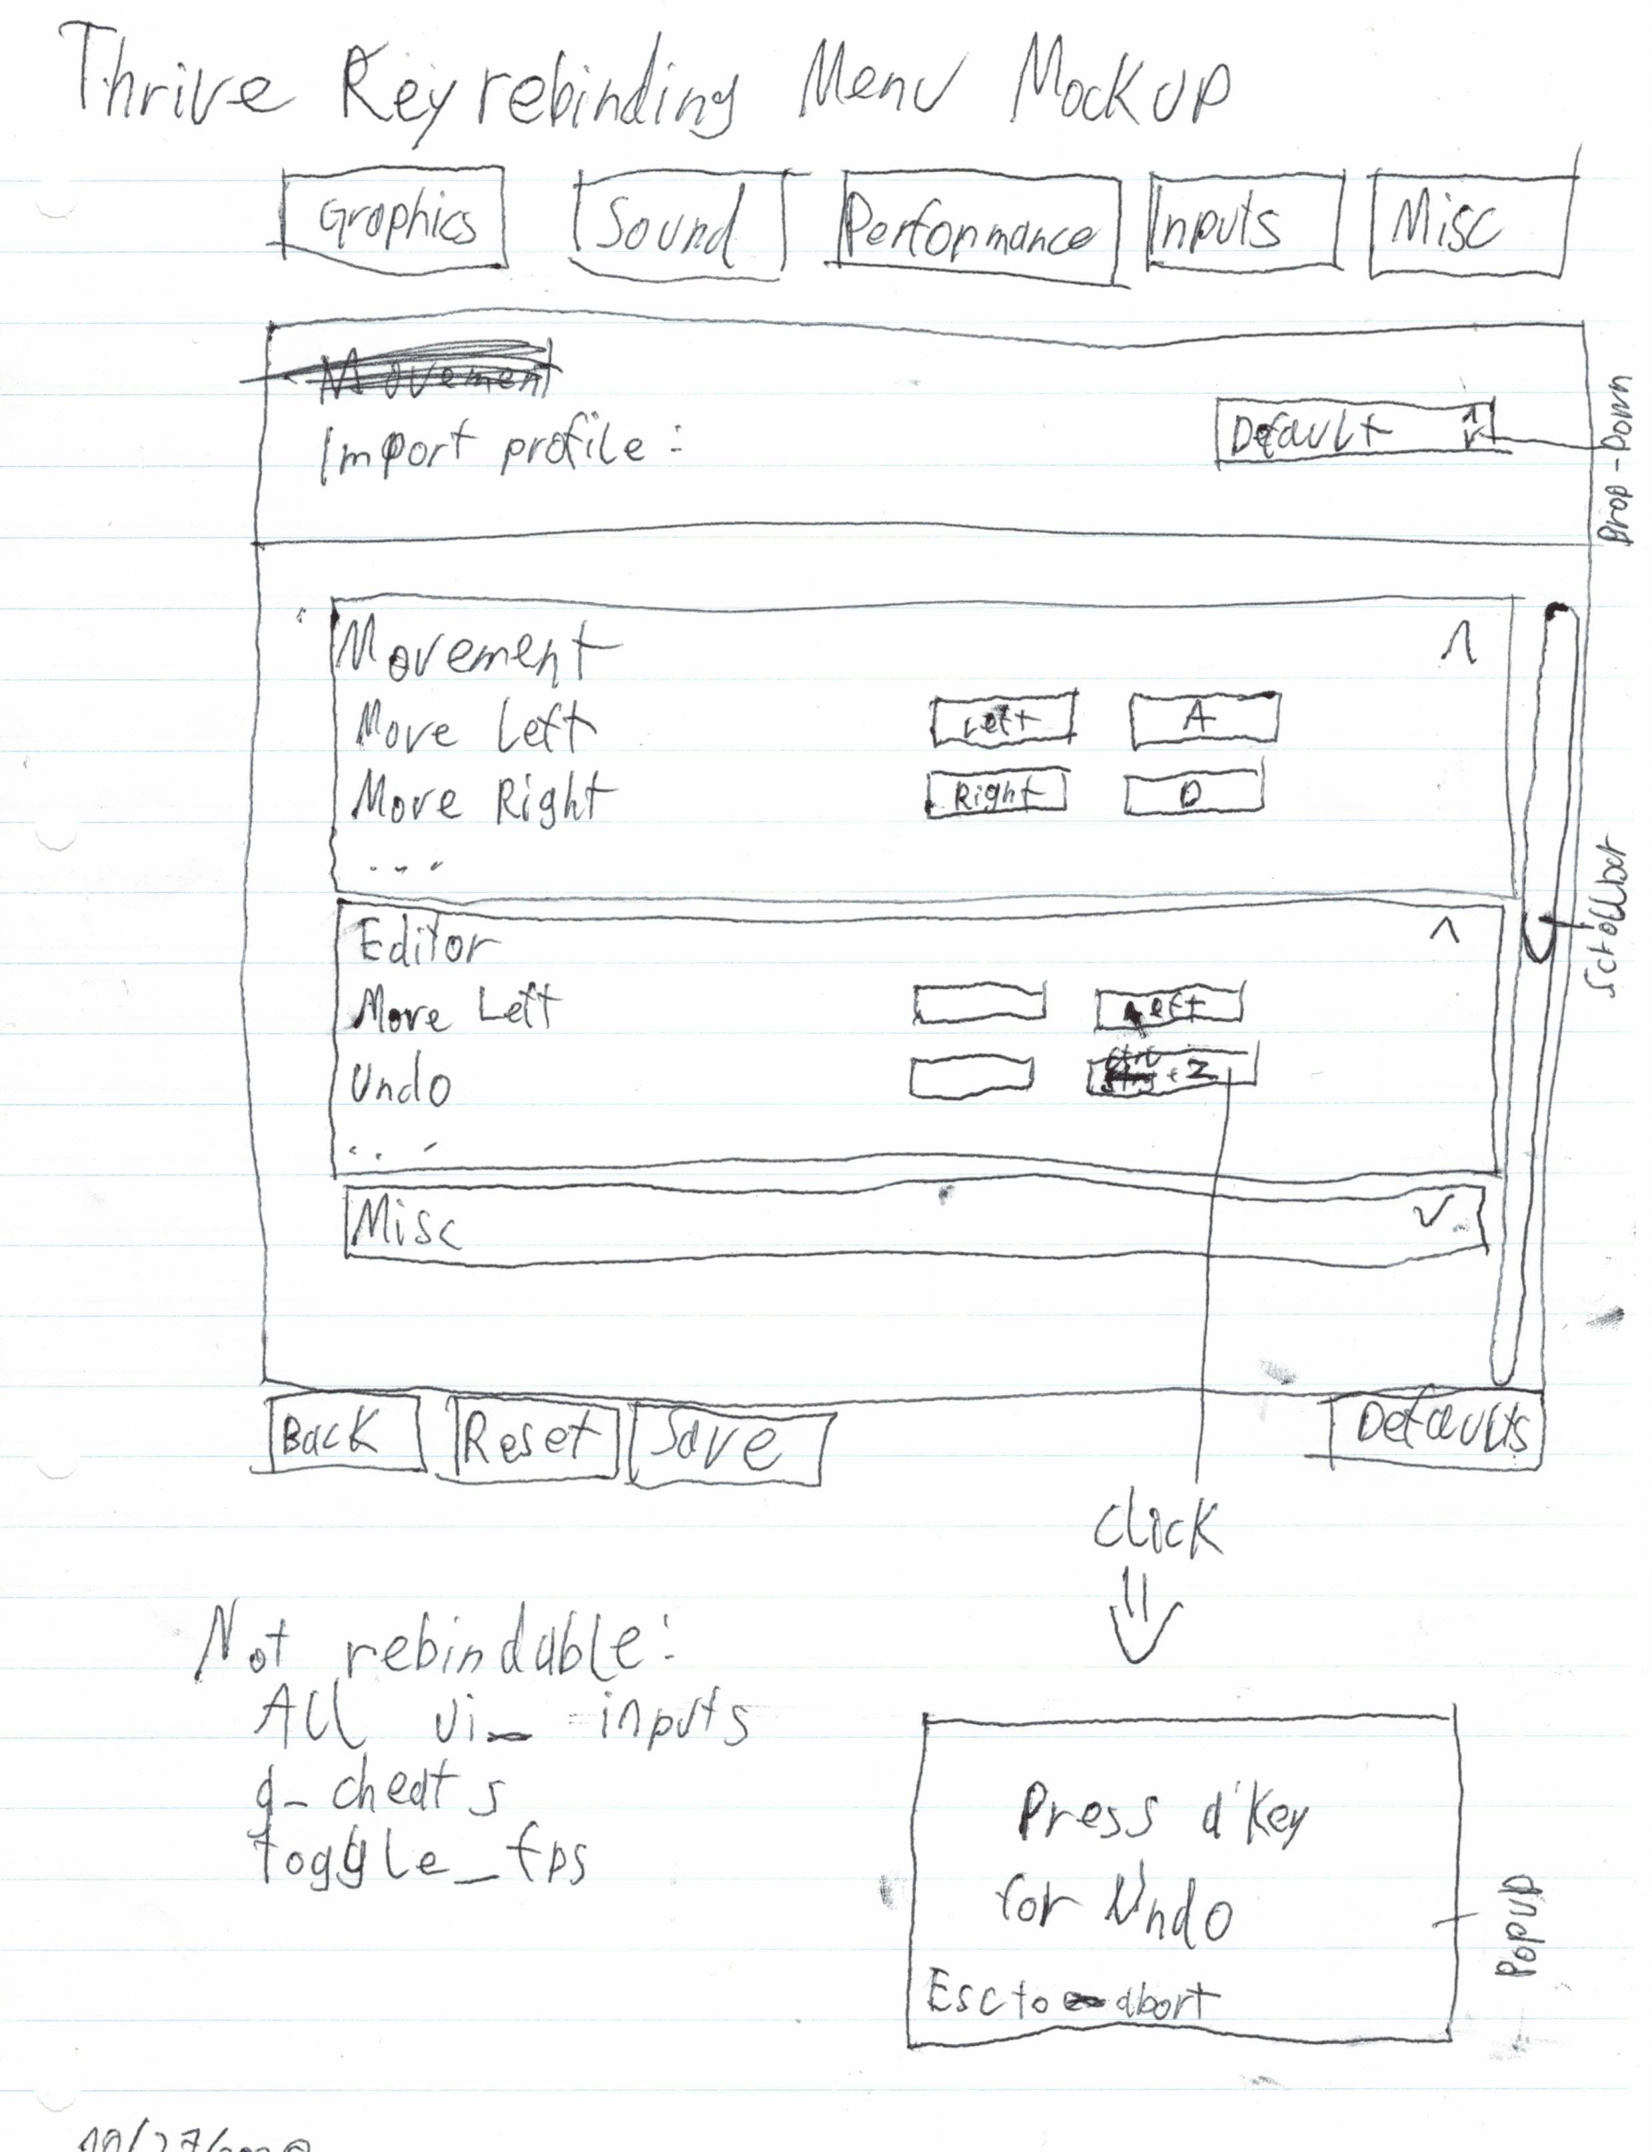 Thrive Key rebinding Menu Mockup
Graphics Sound Performance Inputs Misc
Movement
Import profile: Default
Drop-Down
Movement
Move Left Left A
Move Right Right D
...
Scrollbar
Editor
Move Left Left
Undo Ctrl + Z
...
Misc
Back Reset Save Defaults
click
Not rebindable:
All ui_ inputs
g_cheats
toggle_fps
Press a Key
for Undo
Esc to abort
Popup